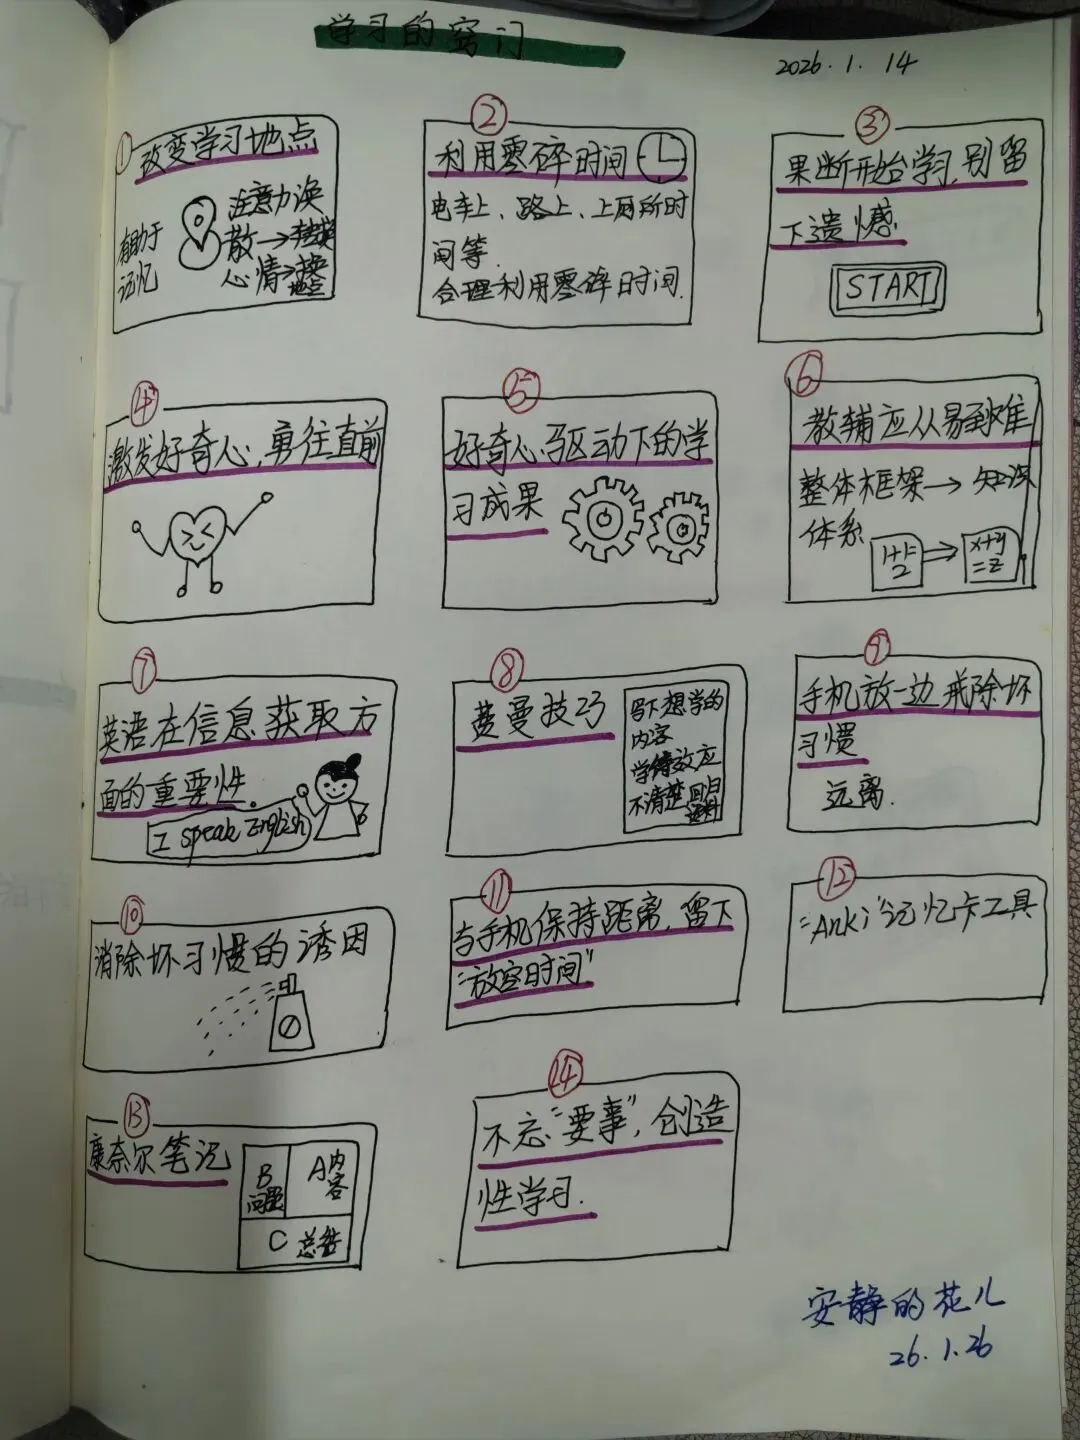 学习的窍门
2026.1.14
①
改变学习地点
有助于
记忆
注意力涣
散→
心情→换
地点
②
利用零碎时间
电车上、路上、上厕所时
间等.
合理利用零碎时间.
③
果断开始学习,别留
下遗憾
START
④
激发好奇心,勇往直前
⑤
好奇心驱动下的学
习成果
⑥
教辅应从易到难
整体框架→知识
体系
1+1=
2
x+y
=z
⑦
英语在信息获取方
面的重要性。
I speak English
⑧
费曼技巧
写下想学的
内容
学得效应
不清楚回归
⑨
手机放一边戒除坏
习惯
远离.
⑩
消除坏习惯的诱因
⑪
与手机保持距离,留下
“放空时间”
⑫
“Anki”记忆卡工具
⑬
康奈尔笔记
B
问题
A内
容
C 总结
⑭
不忘“要事”,创造
性学习.
安静的花儿
26.1.26